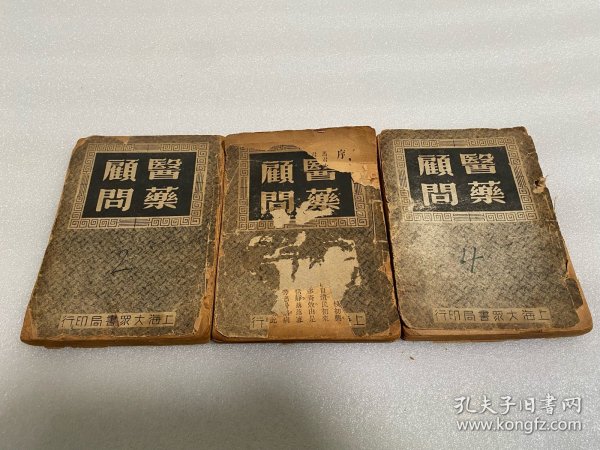 醫藥
顧問
2
上海大眾書局印行
醫藥
顧問
序
上
行
醫藥
顧問
4
上海大眾書局印行
孔夫子旧书网
www.kongfz.com